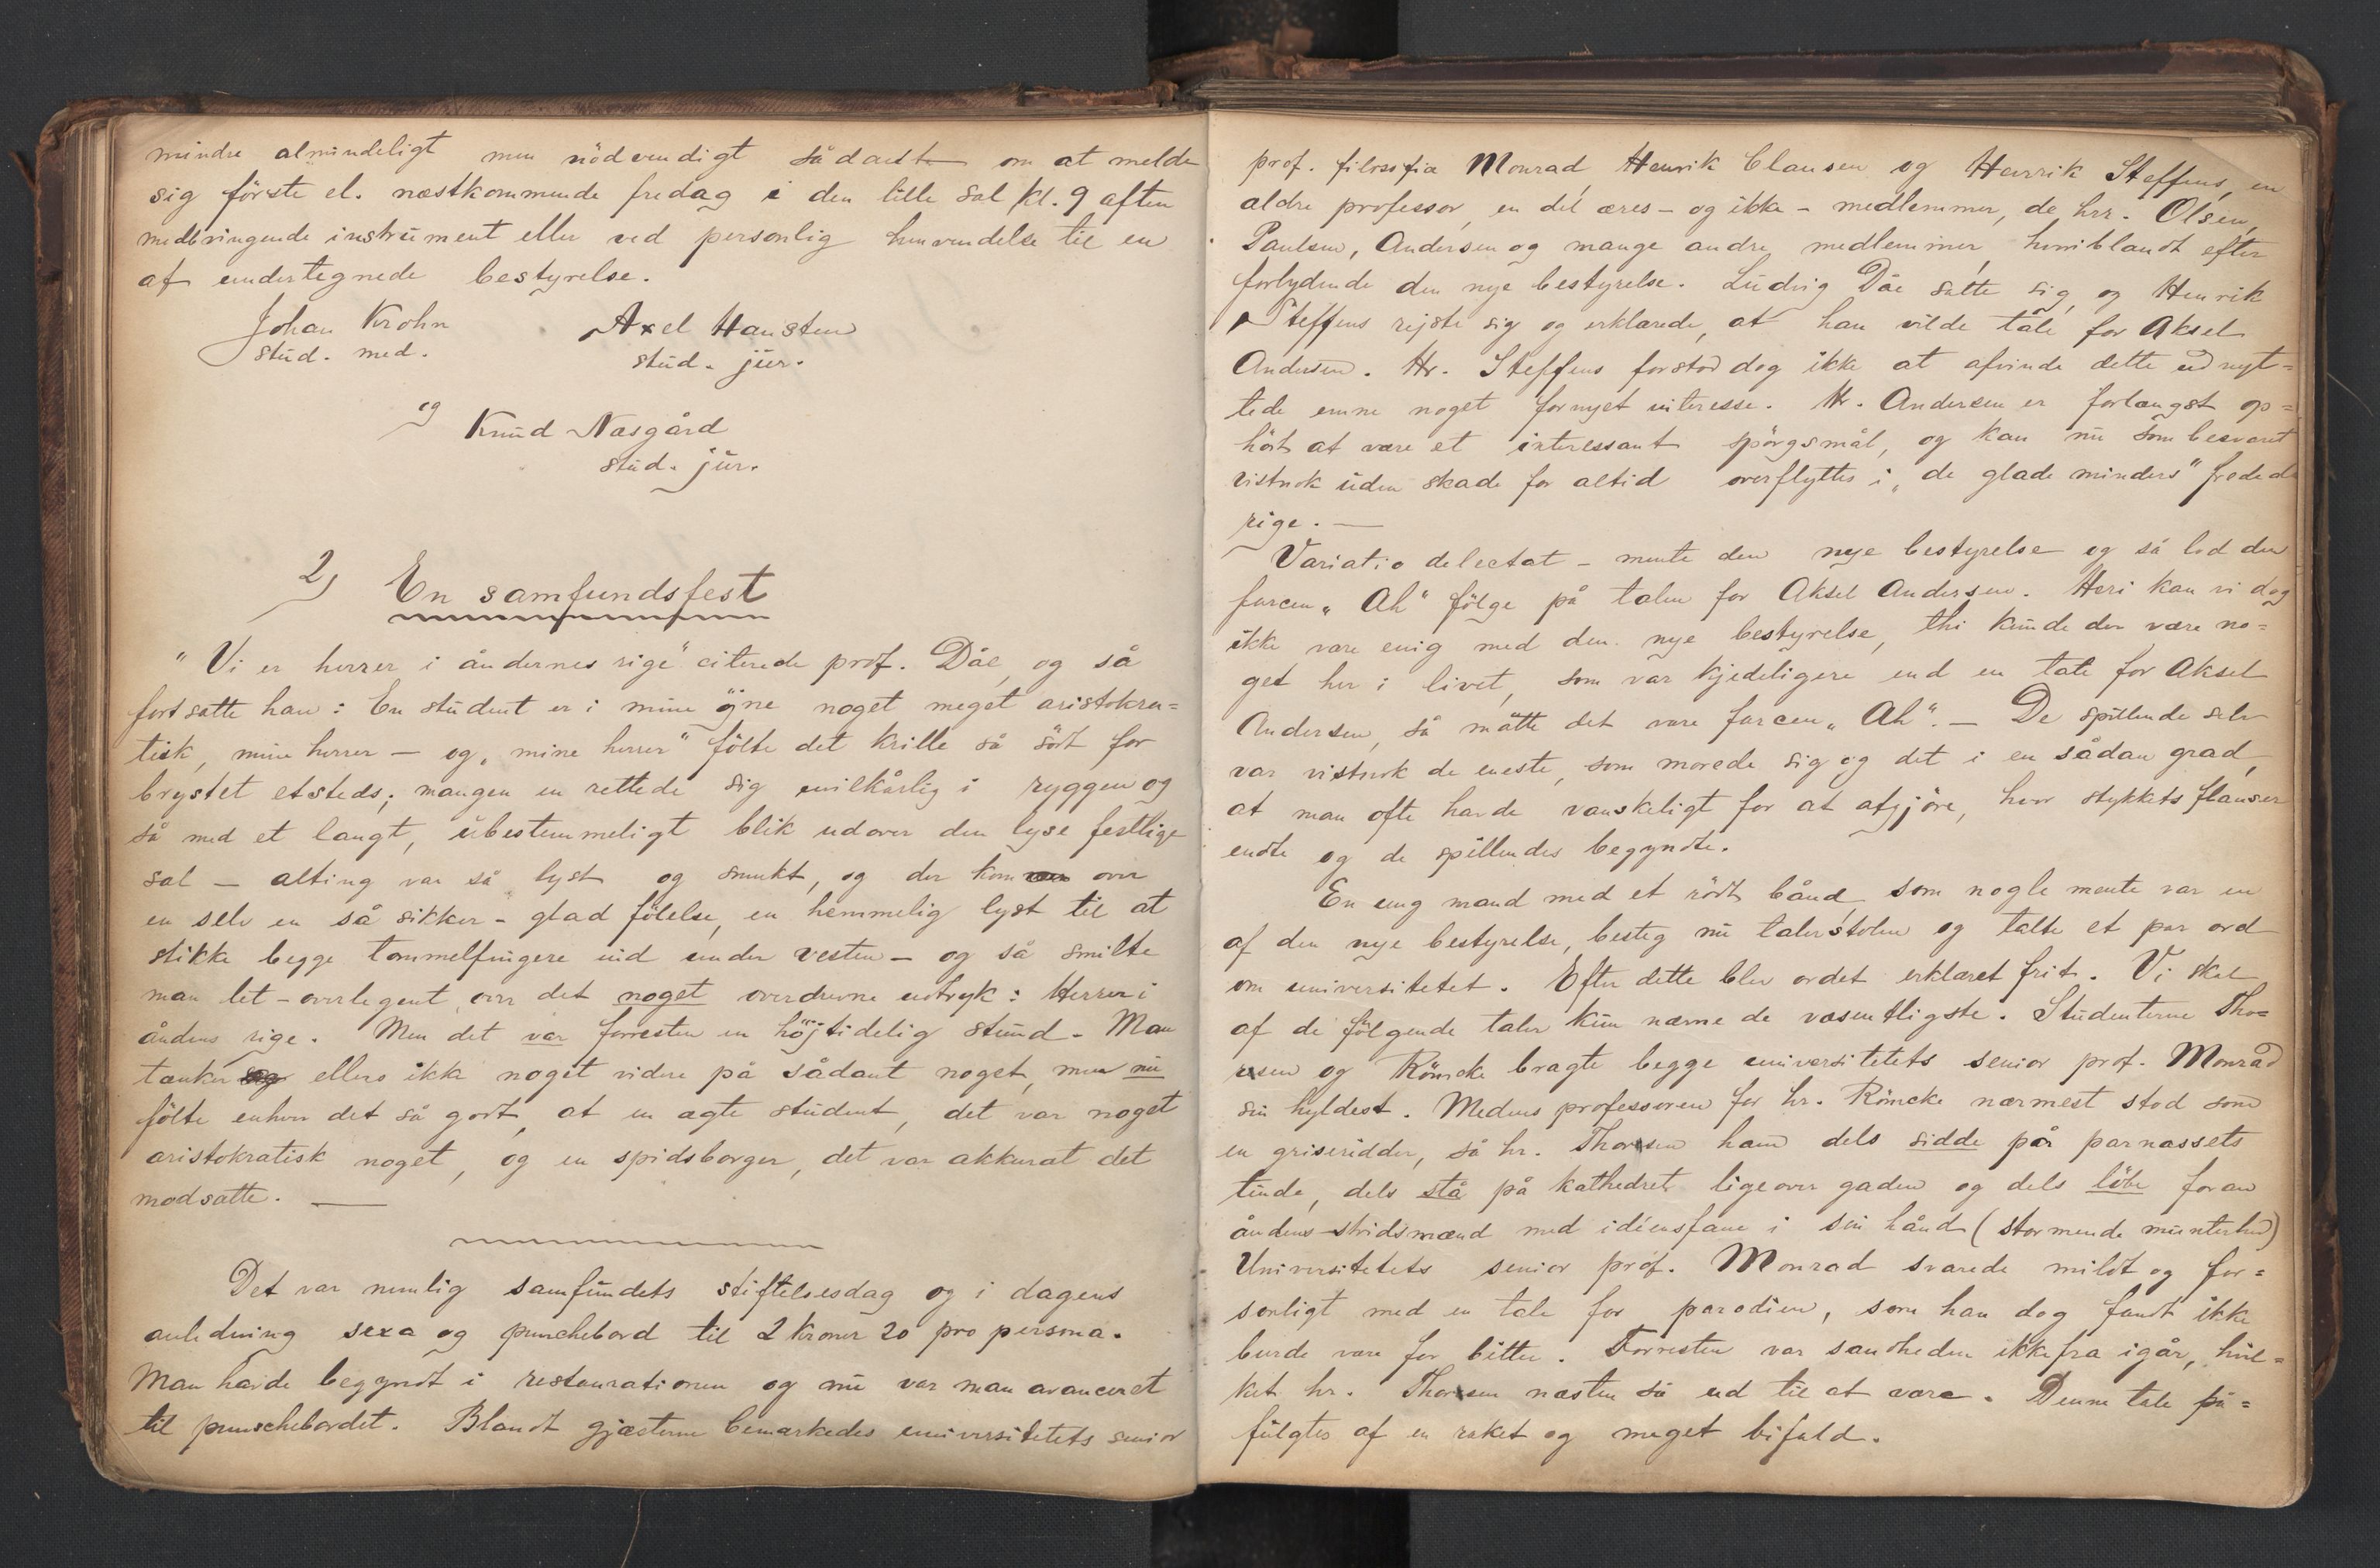 mindre almindeligt men nödvendigt sådant om at melde
sig förste el. næstkommende fredag i den lille sal kl. 9 aften
medbringende instrument eller ved personlig henvendelse til en
af undertegnede bestyrelse.
Johan Krohn
stud. med.
Axel Hansteen
stud. jur.
og Knud Næsgård
stud. jur.
2) En samfundsfest
"Vi er herrer i åndernes rige" citerede prof. Dåe, og så
fortsatte han: En student er i mine öjne noget meget aristokra=
tisk, mine herrer — og „mine herrer" fölte det krille så sört for
brystet etsteds; mangen en rettede sig uvilkårlig i ryggen og
så med et langt, ubestemmeligt blik udover den lyse festlige
sal — alting var så lyst og smukt, og der kom over
en selv en så sikker-glad fölelse, en hemmelig lyst til at
stikke begge tommelfingere ind under vesten — og så smilte
man let-overlegent over det noget overdrevne udtryk: Herrer i
åndens rige. Men det var forresten en höjtidelig stund. Man
tænker ellers ikke noget videre på sådant noget, men nu
fölte enhver det så godt, at en ægte student, det var noget
aristokratisk noget, og en spidsborger, det var akkurat det
modsatte. —
Det var nemlig samfundets stiftelsesdag og i dagens
anledning sexa og punchebord til 2 kroner 20 pro persona.
Man havde begyndt i restaurationen og nu var man avanceret
til punschebordet. Blandt gjæsterne bemærkedes universitetets senior
prof. filosofia Monrad, Henrik Clausen og Henrik Steffens, en
ældre professor, en del æres- og ikke-medlemmer, de hrr. Olsen,
Paulsen, Andersen og mange andre medlemmer, hvoriblandt efter
forlydende den nye bestyrelse. Ludvig Dåe satte sig, og Henrik
Steffens rejste sig og erklærede, at han vilde tale for Aksel
Andersen. Hr. Steffens forstod dog ikke at afvinde dette udnyt=
tede emne noget fornyet interesse. Hr. Andersen er forlængst op=
hört at være et interessant spörgsmål, og kan nu som besvaret
vistnok uden skade for altid overflyttes i „de glade minders" fredede
rige. —
Variatio delectat — mente den nye bestyrelse og så lod den
farcen „Ak" fölge på talen for Aksel Andersen. Heri kan vi dog
ikke være enig med den nye bestyrelse, thi kunde der være no=
get her i livet, som var kjedeligere end en tale for Aksel
Andersen, så måtte det være farcen „Ak". — De spillende selv
var vistnok de eneste, som morede sig og det i en sådan grad,
at man ofte havde vanskeligt for at afgjöre, hvor stykkets flauser
endte og de spillendes begyndte.
En ung mand med et rödt bånd, som nogle mente var en
af den nye bestyrelse, besteg nu talerstolen og talte et par ord
om universitetet. Efter dette blev ordet erklæret frit. Vi skal
af de fölgende taler kun nævne de væsentligste. Studenterne Tho=
resen og Römcke bragte begge universitetets senior prof. Monrad
sin hyldest. Medens professoren for hr. Römcke nærmest stod som
en griseridder, så hr. Thoresen ham dels sidde på parnassets
tinde, dels stå på kathedret ligeover gaden og dels löbe foran
åndens stridsmænd med idéensfane i sin hånd (stormende munterhed)
Universitetets senior prof. Monrad svarede mildt og for=
sonligt med en tale for parodien, som han dog fandt ikke
burde være for bitter. Forresten var sandheden ikke fra igår, hvil=
ket hr. Thoresen næsten så ud til at være. Denne tale på=
fulgtes af en raket og meget bifald.